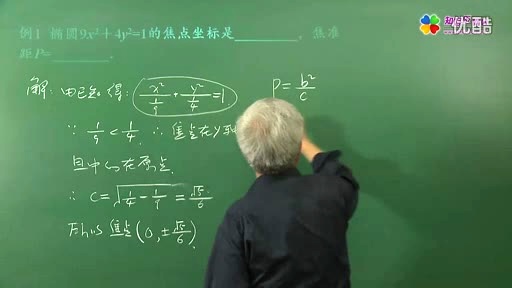 例1 椭圆9x²+4y²=1的焦点坐标是________, 焦准
距P=________.
解: 由已知得: x²/(1/9) + y²/(1/4) = 1
P = b²/c
∵ 1/9 < 1/4 ∴ 焦点在y轴
且中心在原点
∴ c = √(1/4 - 1/9) = √5/6
所以 焦点(0, ±√5/6)
优酷